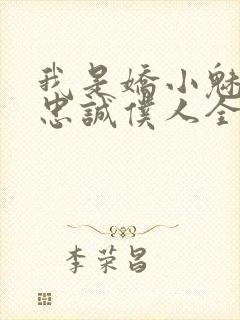 我是嬌小魅
忠誠僕人全
李荣昌